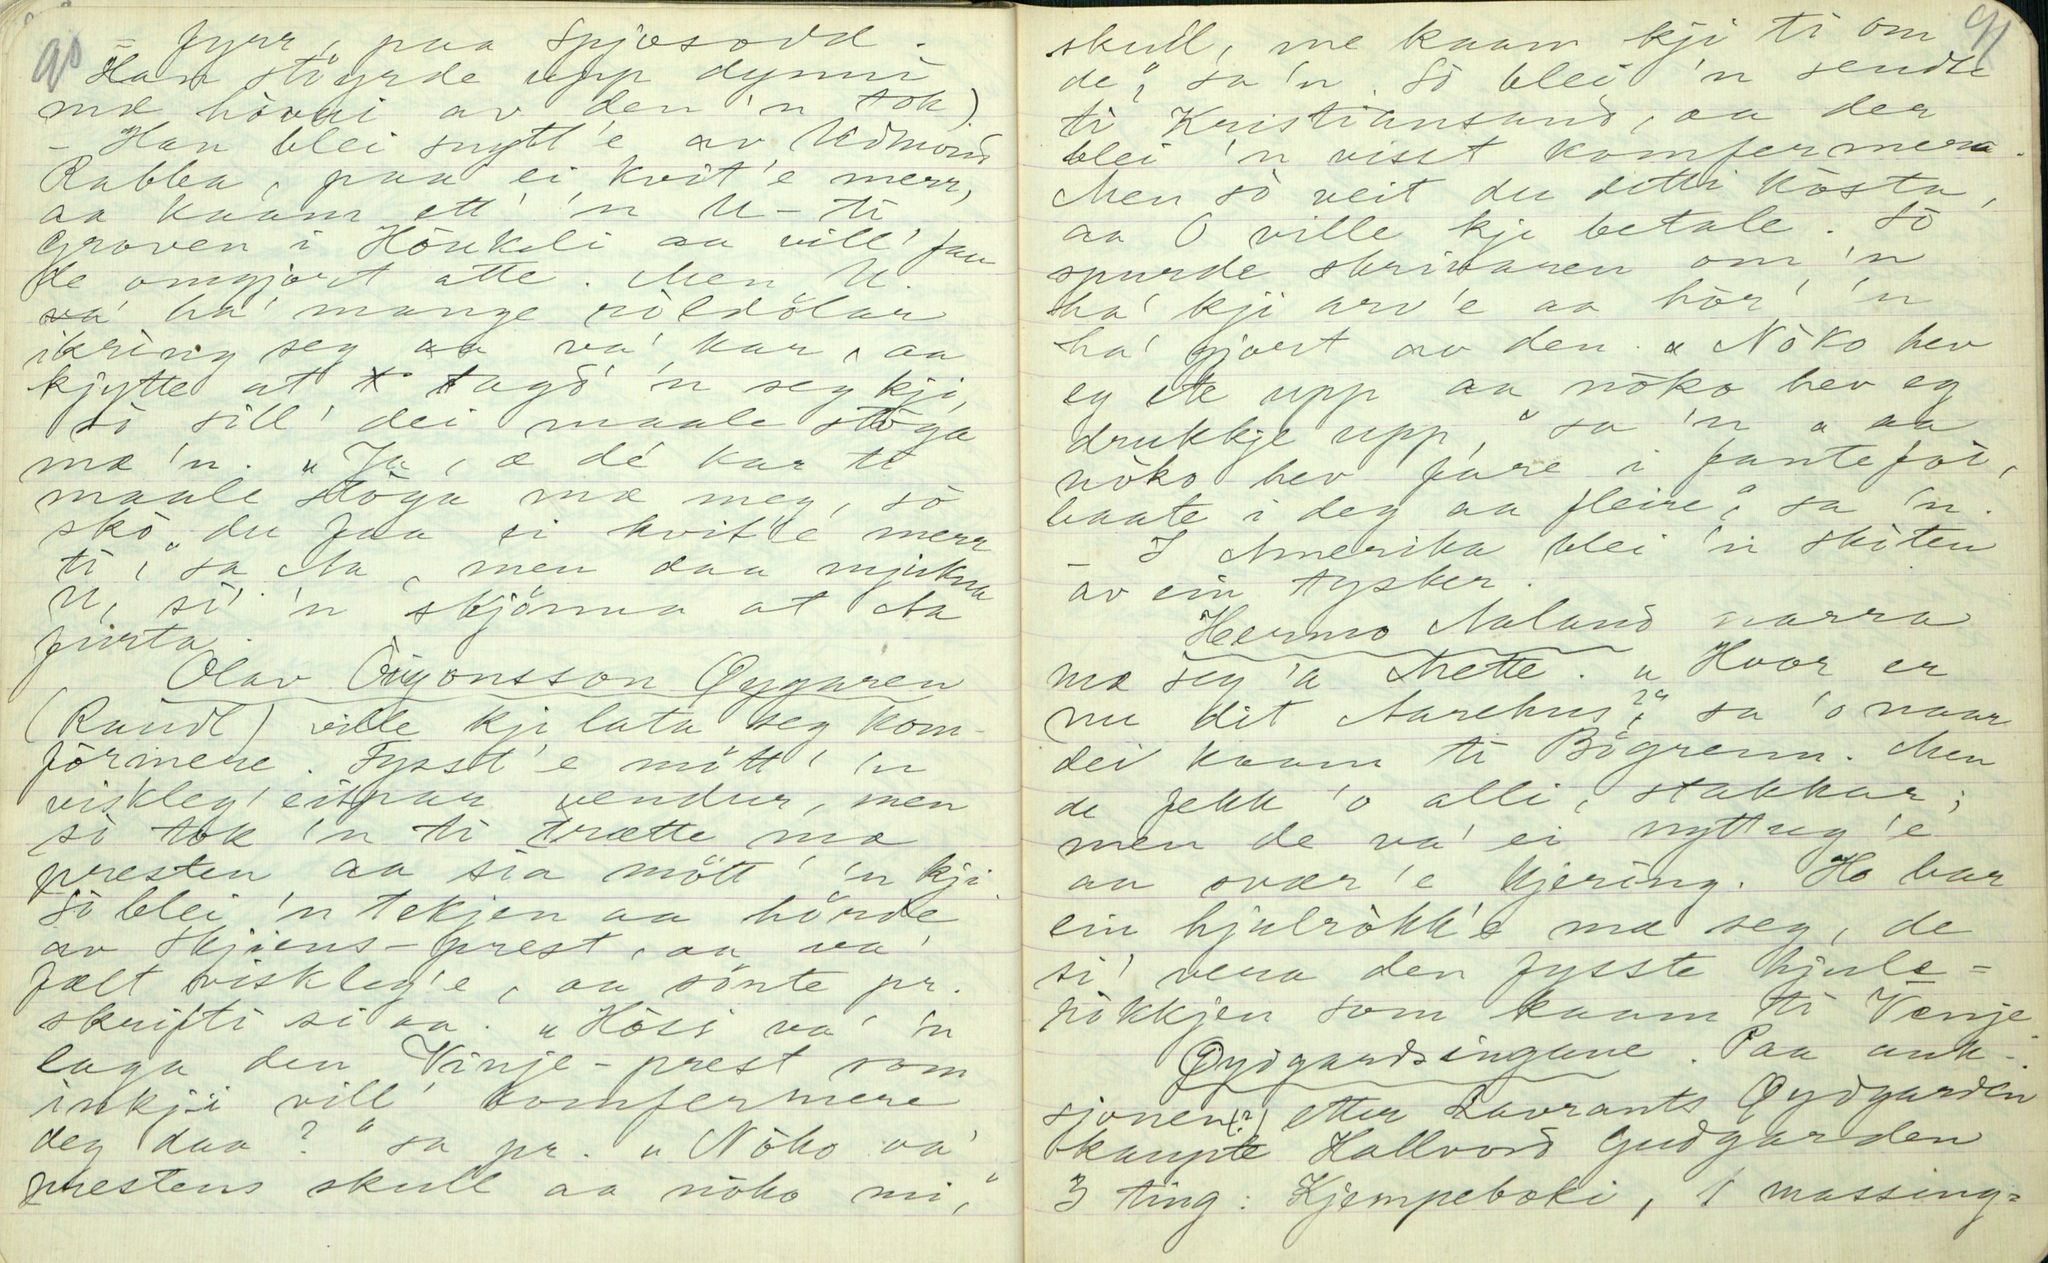 90
- fyrr, paa Spjøsodd.
Han støyrde upp dynni
mæ hòvui av den 'n tok)
- Han blei snytt'e av Udmond
Rabba, paa ei kvit'e merr,
aa kaam ett' 'n U- ti
Groven i Hòukeli aa vill' faa
de omgjort atte. Men U.
ha' mange röldölar
ikring seg aa va' kar, aa
kjytte at tagd' 'n seg kji,
sò sill' dei maale stòga
mæ 'n. "Ja, æ dé kar te
maale stòga mæ meg, sò
skò du faa ei kvit'e merr
ti," sa Aa, men daa mjukna
U, si' 'n skjönna at Aa
furta.
Olav Øygonsson Øygaren
(Raudl) ville kji lata seg kom-
förmere. Fysst'e mött' 'n
viskleg' eitpar vendur, men
sò tok 'n ti trætte mæ
presten aa sia mött' 'n kji.
Sò blei 'n tekjen aa hörde
av Skjiens-prest, aa va'
fælt viskleg'e, aa sönte pr.
skrifti si aa. "Hòss va' 'n
laga den Vinje-prest som
inkji vill' komfermere
deg daa?" sa pr. "Nòko va'
prestens skull aa nòko mi,"
91
skull, me kaam kji ti om
de," sa 'n. Sò blei 'n sendte
ti Kristiansand, aa der
blei 'n visst komfermera.
Men sò veit du ditti kòsta,
aa O ville kje betale. Sò
spurde skrivaren om 'n
ha' kji arv'e aa hòr' 'n
ha' gjort av den. "Nòko hev
eg ete upp aa nòko hev eg
drukkje upp," sa 'n "aa
nòko hev fare i fantefòi,
baate i deg aa fleire," sa 'n.
- I Amerika blei 'n skiten
av ein tysker.
Hermo Aaland narra
mæ seg 'a Mette. "Hvor er
nu dit Aarehus?" sa 'o naar
dei kaam ti Bögrenn. Men
de fekk 'o alli, stakkar;
men de va' ei nyttug'e
aa svær'e kjering. Ho bar
ein hjulròkk'e mæ seg, de
si' vera den fysste hjule=
ròkkjen som kaam ti Vinje.
Øydgardsingane. Paa auk-
sjonen(?) etter Lavrants Øydgarden
kaupte Hallvord Gudgarden
3 ting: Kjempeboki, 1 massing=